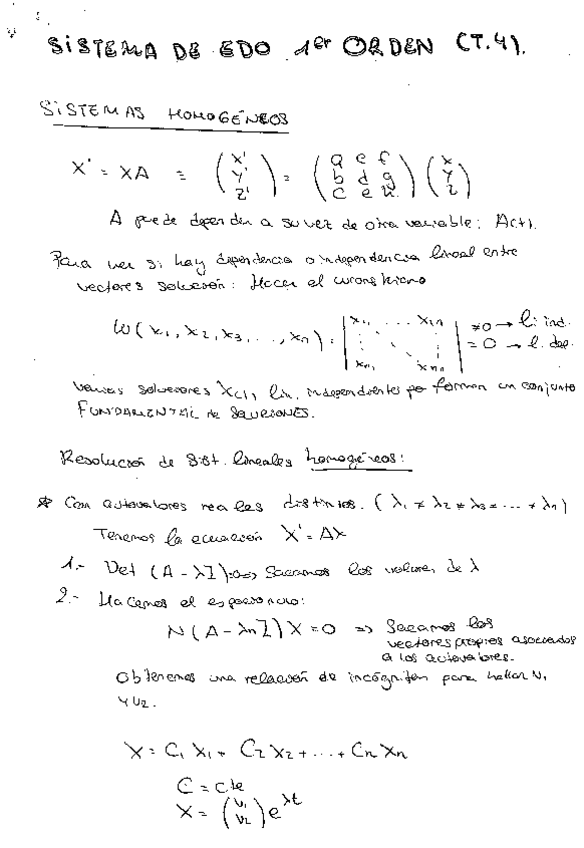 SISTEMA DE EDO 1er ORDEN (T.4).
SISTEMAS HOMOGÉNEOS
X' = XA = (x' y' z') = (a e f; b d g; c e h) (x y z)
A puede depender a su vez de otra variable: A(t).
Para ver si hay dependencia o independencia lineal entre
vectores solución: Hacer el wronskiano
W(x1, x2, x3, ..., xn) = |x11 ... x1n; xn1 ... xnn| ≠0 → l. ind.
= 0 → l. dep.
varias soluciones X(t), lin. independientes forman un conjunto
FUNDAMENTAL de SOLUCIONES.
Resolución de sist. lineales homogéneos:
* Con autovalores reales distintos. (λ1 ≠ λ2 ≠ λ3 = ... ≠ λn)
Tenemos la ecuación X' = AX
1.- Det (A - λI)=0 => Sacamos los valores de λ
2.- Hacemos el espacio nulo:
N(A - λnI) X = 0 => Sacamos los
vectores propios asociados
a los autovalores.
Obtenemos una relación de incógnitas para hallar V1
y V2.
X = C1 X1 + C2 X2 + ... + Cn Xn
C = cte
X = (V1 V2) e^λt